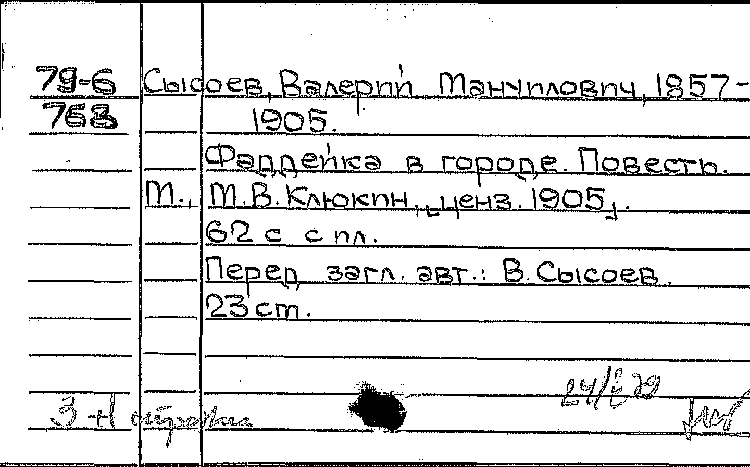 79-6 Сысоев, Валерий Мануилович, 1857-
768 1905.
Фаддейка в городе. Повесть.
М., М.В.Клюкин, [ценз. 1905].
62 с с ил.
Перед загл. авт.: В.Сысоев.
23 ст.
24/I 79
3-й